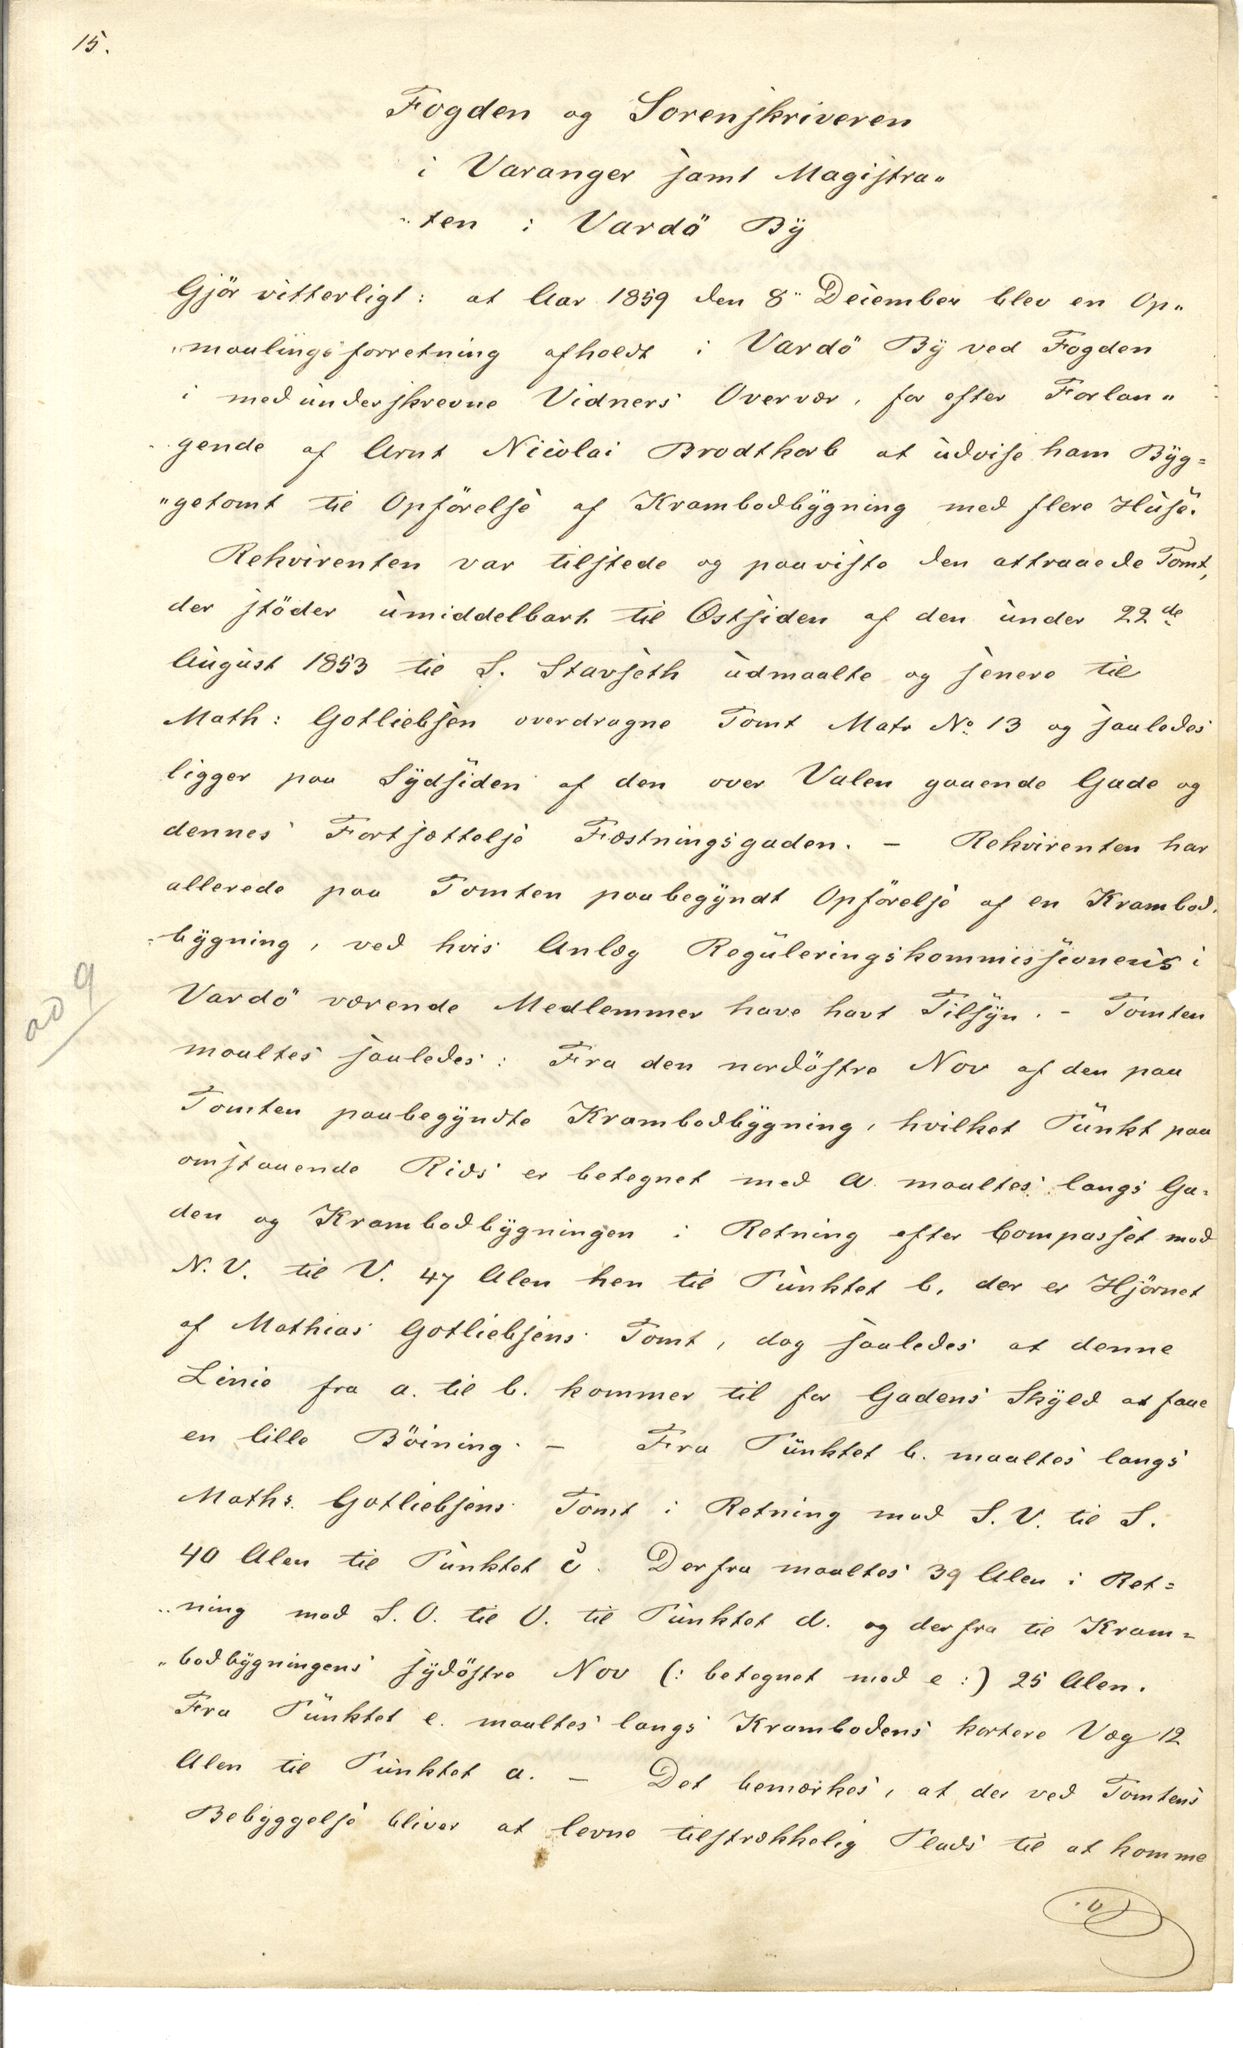 15.
Fogden og Sorenskriveren
i Varanger samt Magistra„
„ten i Vardö By
Gjör vitterligt: at Aar 1859 den 8„ December blev en Op„
„maalingsforretning afholdt i Vardö By ved Fogden
i medunderskrevne Vidners Overvær, for efter Forlan„
gende af Arnt Nicolai Brodtkorb at udvise ham Byg=
„getomt til Opförelse af Krambodbygning med flere Huse.
Rekvirenten var tilstede og paaviste den attraaede Tomt,
der stöder umiddelbart til Østsiden af den under 22de
August 1853 til S. Stavseth udmaalte og senere til
Math: Gotliebsen overdragne Tomt Matr No 13 og saaledes
ligger paa Sydsiden af den over Valen gaaende Gade og
dennes Fortsættelse Fæstningsgaden. — Rekvirenten har
allerede paa Tomten paabegyndt Opförelse af en Krambod„
„bygning, ved hvis Anlæg Reguleringskommissionens i
Vardö værende Medlemmer have havt Tilsyn. — Tomten
maaltes saaledes: Fra den nordöstre Nov af den paa
Tomten paabegyndte Krambodbygning, hvilket Punkt paa
omstaaende Rids er betegnet med A. maaltes langs Ga„
den og Krambodbygningen i Retning efter Compasset mod
N. V. til V. 47 Alen hen til Punktet b. der er Hjörnet
af Mathias Gotliebsens Tomt, dog saaledes at denne
Linie fra a. til b. kommer til for Gadens Skyld at faae
en lille Böining. — Fra Punktet b. maaltes langs
Maths. Gotliebsens Tomt i Retning mod S. V. til S.
40 Alen til Punktet c. Derfra maaltes 39 Alen i Ret=
„ning mod S. O. til O. til Punktet d. og derfra til Kram=
„bodbygningens sydöstre Nov (: betegnet med e :) 25 Alen.
Fra Punktet e. maaltes langs Krambodens kortere Væg 12
Alen til Punktet a. — Det bemærkes, at der ved Tomtens
Bebyggelse bliver at levne tilstrækkelig Plads til at komme
ad 9